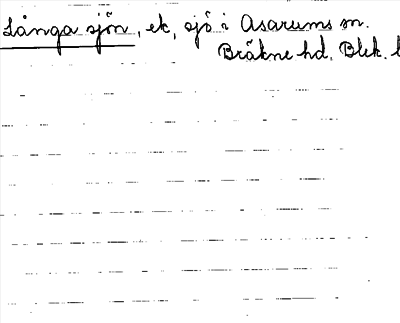 Långa sjön, ek, sjö i Asarums sn.
Bräkne hd. Blek. l